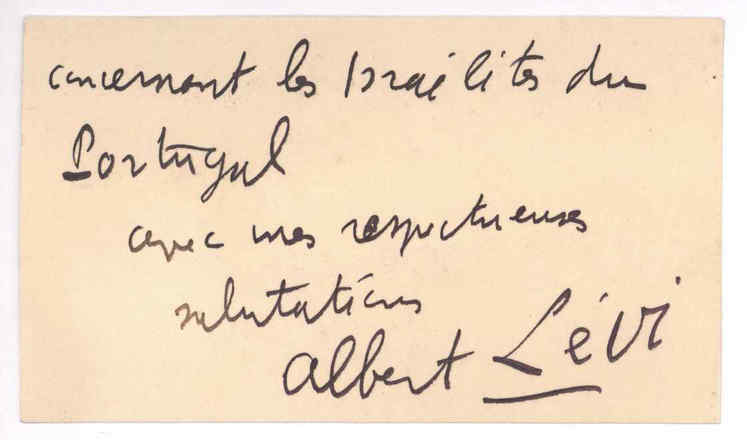 concernant les Israélites du
Portugal
avec mes respectueuses
salutations
Albert Lévi